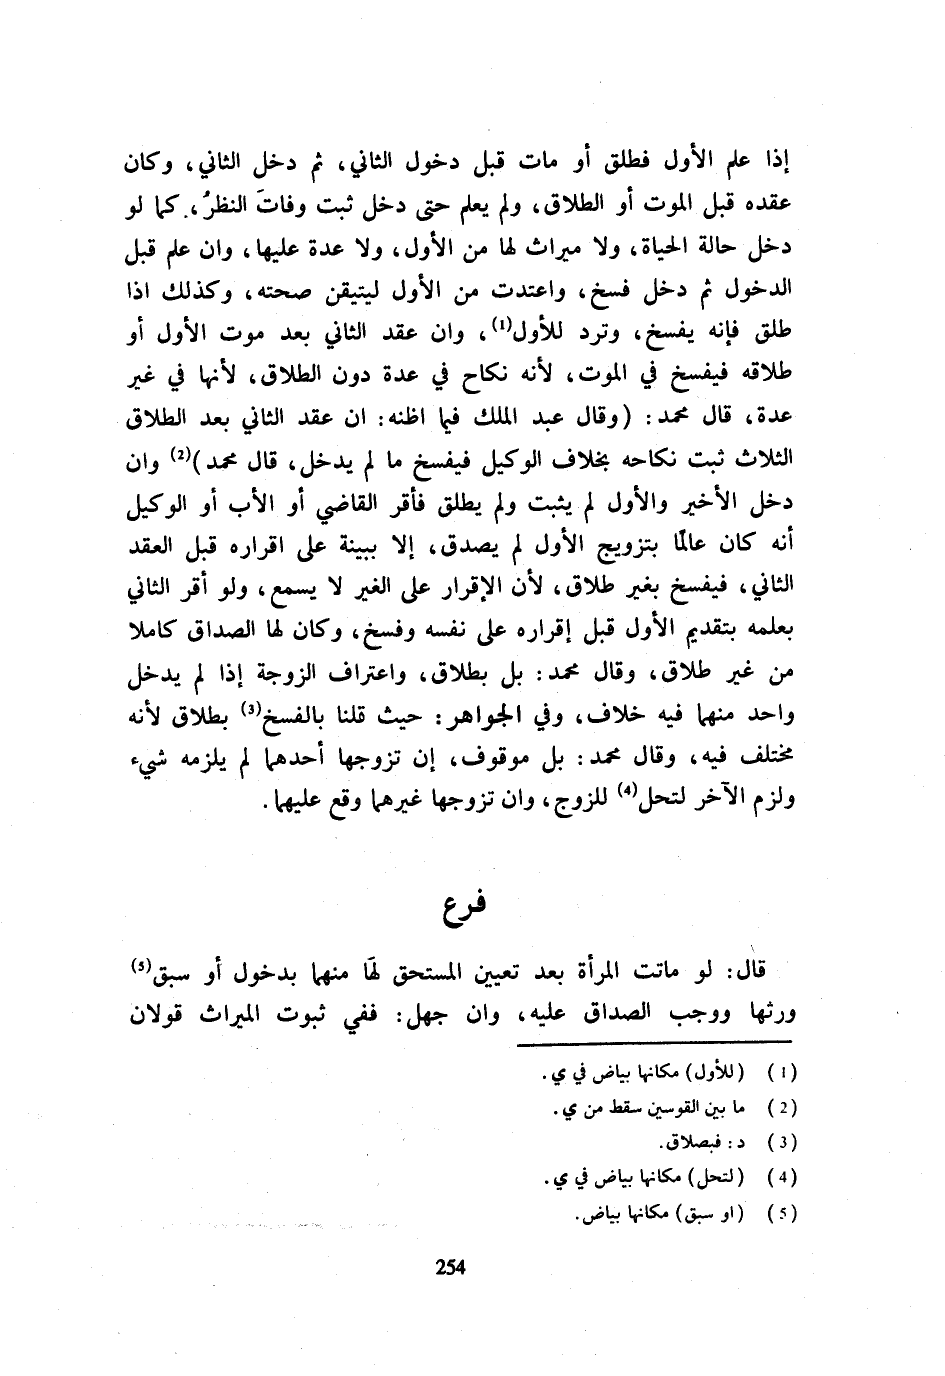 إذا علم الأول فطلق أو مات قبل دخول الثاني، ثم دخل الثاني، وكان
عقده قبل الموت أو الطلاق، ولم يعلم حتى دخل ثبت وفاتَ النظرُ، كما لو
دخل حالة الحياة، ولا ميراث لها من الأول، ولا عدة عليها، وان علم قبل
الدخول ثم دخل فسخ، واعتدت من الأول ليتيقن صحته، وكذلك اذا
طلق فإنه يفسخ، وترد للأول(1)، وان عقد الثاني بعد موت الأول أو
طلاقه فيفسخ في الموت، لأنه نكاح في عدة دون الطلاق، لأنها في غير
عدة، قال محمد: (وقال عبد الملك فيما اظنه: ان عقد الثاني بعد الطلاق
الثلاث ثبت نكاحه بخلاف الوكيل فيفسخ ما لم يدخل، قال محمد)(2) وان
دخل الأخير والأول لم يثبت ولم يطلق فأقر القاضي أو الأب أو الوكيل
أنه كان عالمًا بتزويج الأول لم يصدق، إلا ببينة على اقراره قبل العقد
الثاني، فيفسخ بغير طلاق، لأن الإقرار على الغير لا يسمع، ولو أقر الثاني
بعلمه بتقديم الأول قبل إقراره على نفسه وفسخ، وكان لها الصداق كاملا
من غير طلاق، وقال محمد: بل بطلاق، واعتراف الزوجة إذا لم يدخل
واحد منهما فيه خلاف، وفي الجواهر: حيث قلنا بالفسخ(3) بطلاق لأنه
مختلف فيه، وقال محمد: بل موقوف، إن تزوجها أحدهما لم يلزمه شيء
ولزم الآخر لتحل(4) للزوج، وان تزوجها غيرهما وقع عليهما.
فرع
قال: لو ماتت المرأة بعد تعيين المستحق لهَا منهما بدخول أو سبق(5)
ورثها ووجب الصداق عليه، وان جهل: ففي ثبوت الميراث قولان
(1) (للأول) مكانها بياض في ي.
(2) ما بين القوسين سقط من ي.
(3) د: فبصلاق.
(4) (لتحل) مكانها بياض في ي.
(5) (او سبق) مكانها بياض.
254